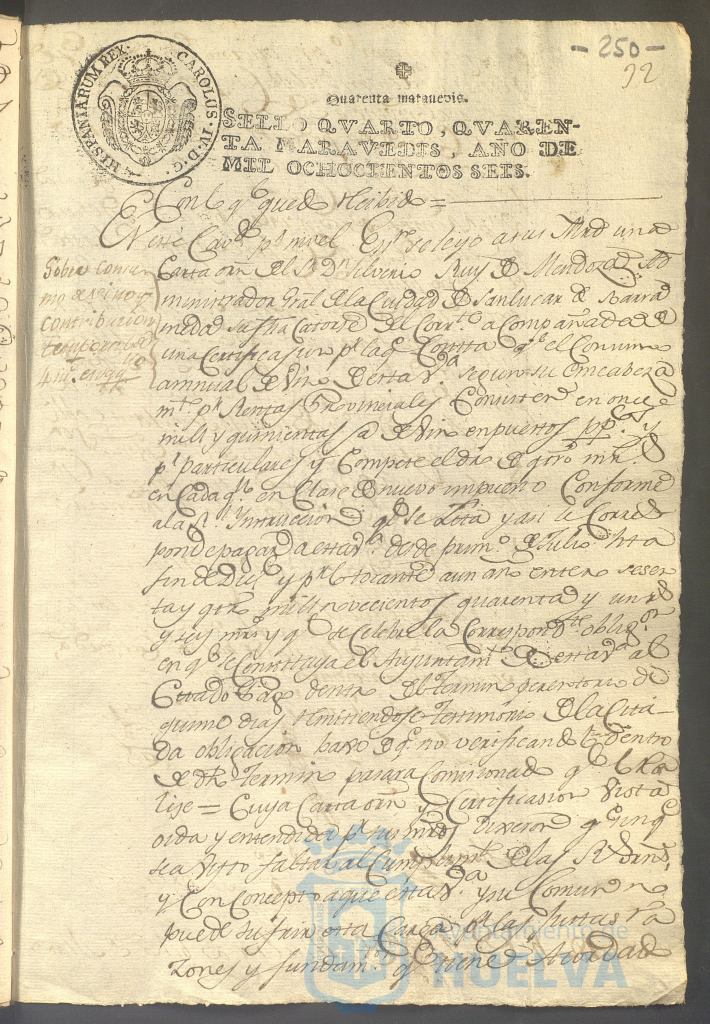 - 250 -
92
HISPANIARUM REX. CAROLUS. IV. D. G.
Quarenta maravedis.
SELLO QVARTO, QVAREN-
TA MARAVEDIS, AÑO DE
MIL OCHOCIENTOS SEIS.
Con lo q.e quedó recibido =
En este Cav.do p.r mi el Ess.no se leyo a sus Mrds una
Carta orn del S.r D.n Silverio Ruiz de Mendoza Ad
ministrador Gral de la Ciudad de Sanlucar de Barra
meda su fha Catorse del Corr.te acompañada de
una Certificasion p.r la q.e Consta q.e el Consumo
annual de Vino de esta V.a segun su encabeza
m.to p.r Rentas Provinciales Consiste en once
mill y quinientas @ de Vino en puestos pp.cos y
p.r particulares y Compete el dro de qtro mrs
en Cada q.llo en Clase de nuevo impuesto Conforme
a la R.l Instruccion q.e se Zita y asi le Corres
ponde pagar a esta V.a desde prim.o de Julio hta
fin de Dic.e y p.r lo tocante a un año entero sesen
ta y qtro mill novecientos quarenta y un rs
y seis mrs y q.e se celebre la Correspond.te oblig.on
en q.e se Constituya el Ayuntam.to de esta V.a al
Citado Pago dentro del termino perentorio de
quinse dias remitiendose Testimonio de la Cita-
da obligacion baxo de q.e no verificandolo dentro
de dho Termino pasara Comisionado q.e lo Rea
lise = Cuya Carta orn y Certificasion Vista
oida y entendida p.r sus mrds Dixeron q.e sinq.e
sea Visto faltar al Cumplim.to de las R.s ordns,
y Con Concepto a que esta V.a y su Comun no
puede sufrir esta Carga p.r las Justas ra
zones y fundam.tos q.e tiene Acordado
Sobre Consu
mo de vino y
contribucion
temporal de
4 m.s en q.llo
Ayuntamiento de
HUELVA